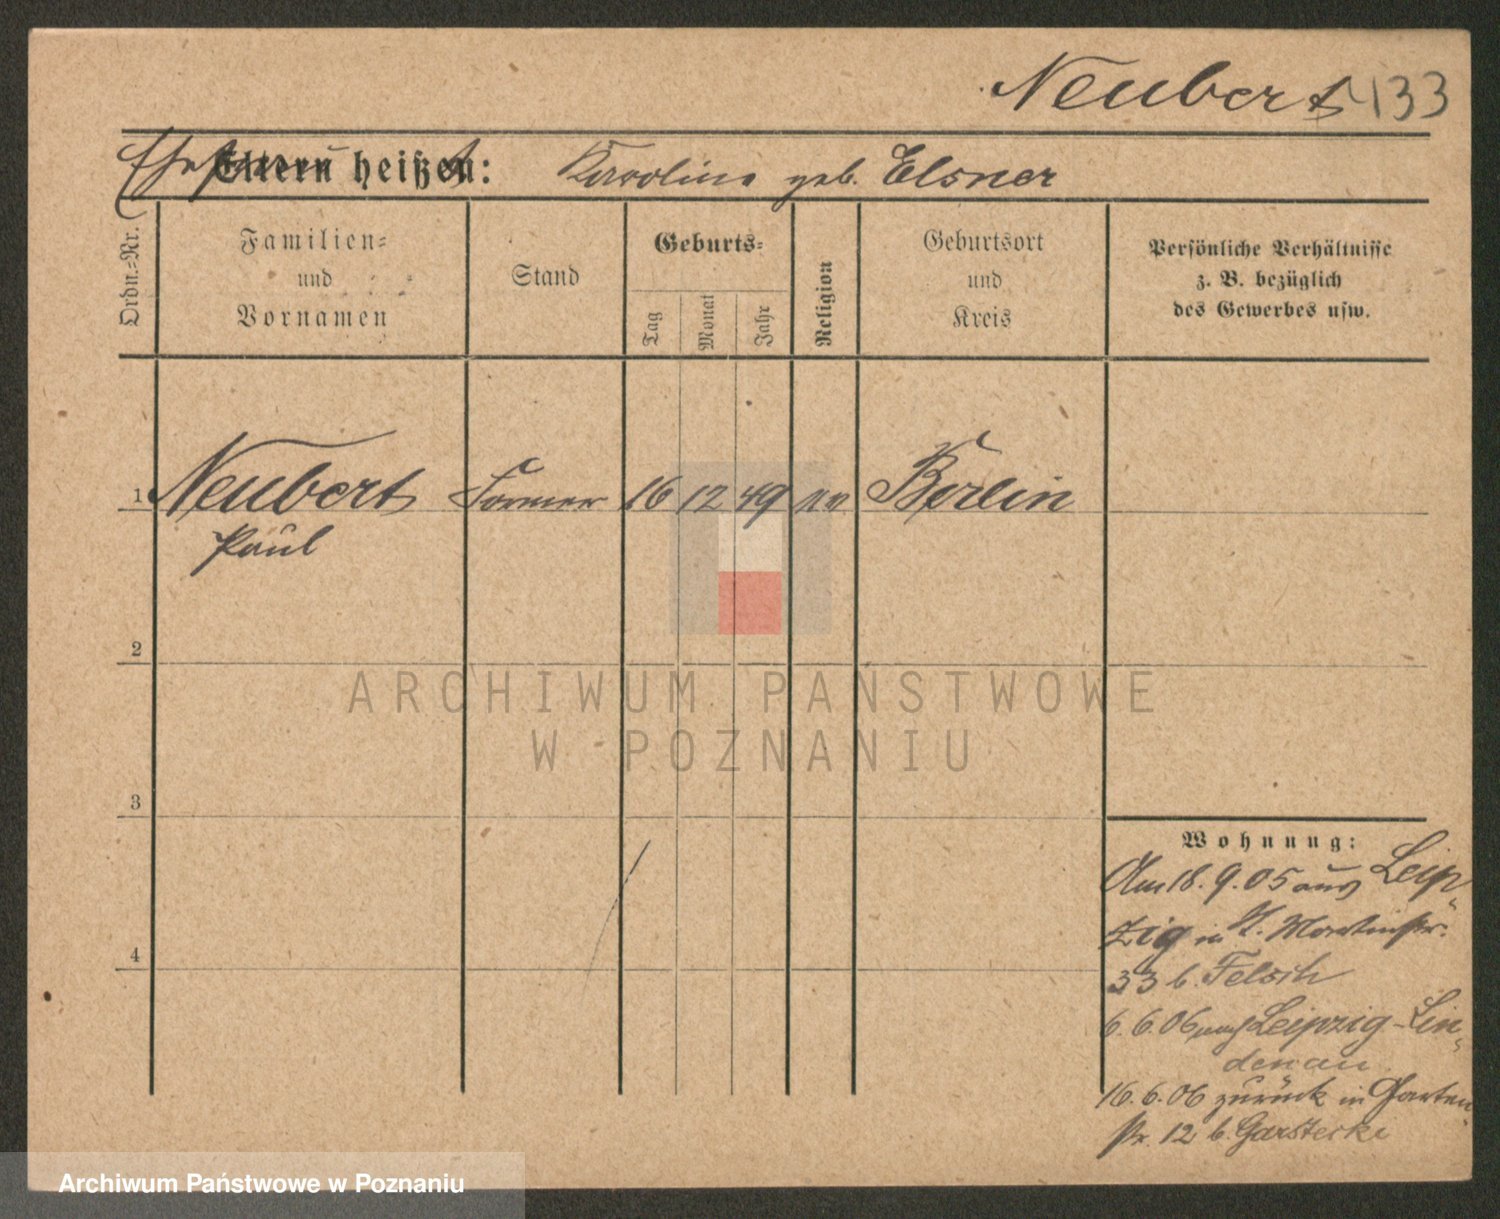 Neubert 133
Ehefrau Eltern heißen: Karoline geb. Elsner
Ordn.-Nr.
Familien-
und
Vornamen
Stand
Geburts-
Tag
Monat
Jahr
Religion
Geburtsort
und
Kreis
Persönliche Verhältnisse
z. B. bezüglich
des Gewerbes usw.
1 Neubert Former 16 12 49 Berlin
Paul
2
3
4
Wohnung:
Am 18.9.05 aus Leip-
zig in St. Martinstr.
33 b. Felsch
6.6.06 nach Leipzig-Lin-
denau
16.6.06 zurück in Garten-
str. 12 b. Garstecki
ARCHIWUM PAŃSTWOWE
W POZNANIU
Archiwum Państwowe w Poznaniu